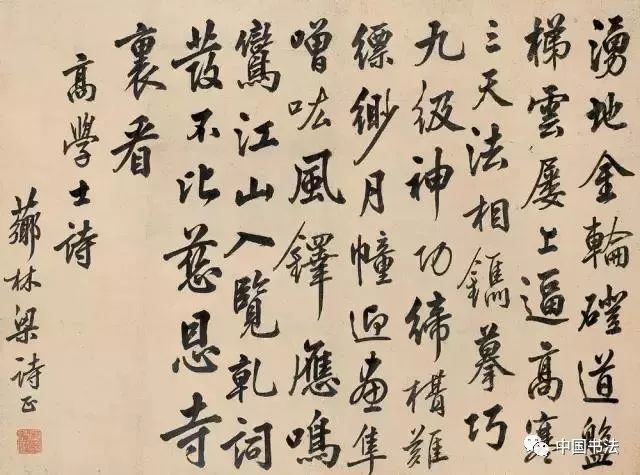 湧地金輪磴道盤
梯雲屢上逼高寒
三天法相鐫摹巧
九級神功締構難
縹緲月幢迎畫隼
噌吰風鐸應鳴
鸞江山入覽乾詞
發不比慈恩寺
裏看
高學士詩
薌林梁詩正
中国书法